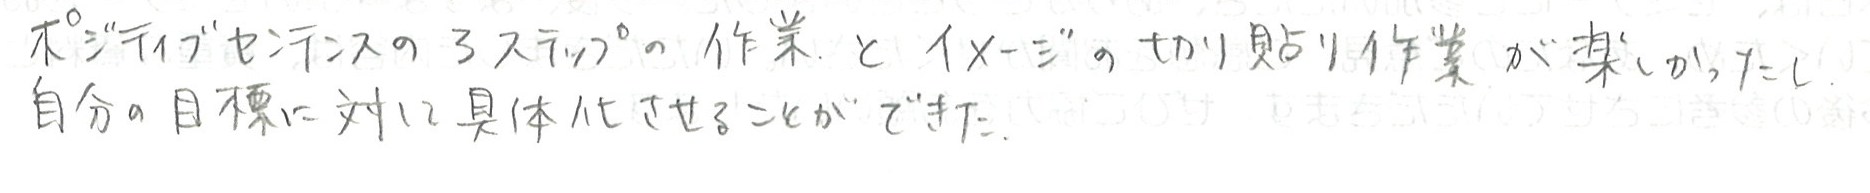 ポジティブセンテンスの3ステップの作業.とイメージの切り貼り作業が楽しかったし.
自分の目標に対して具体化させることができた.